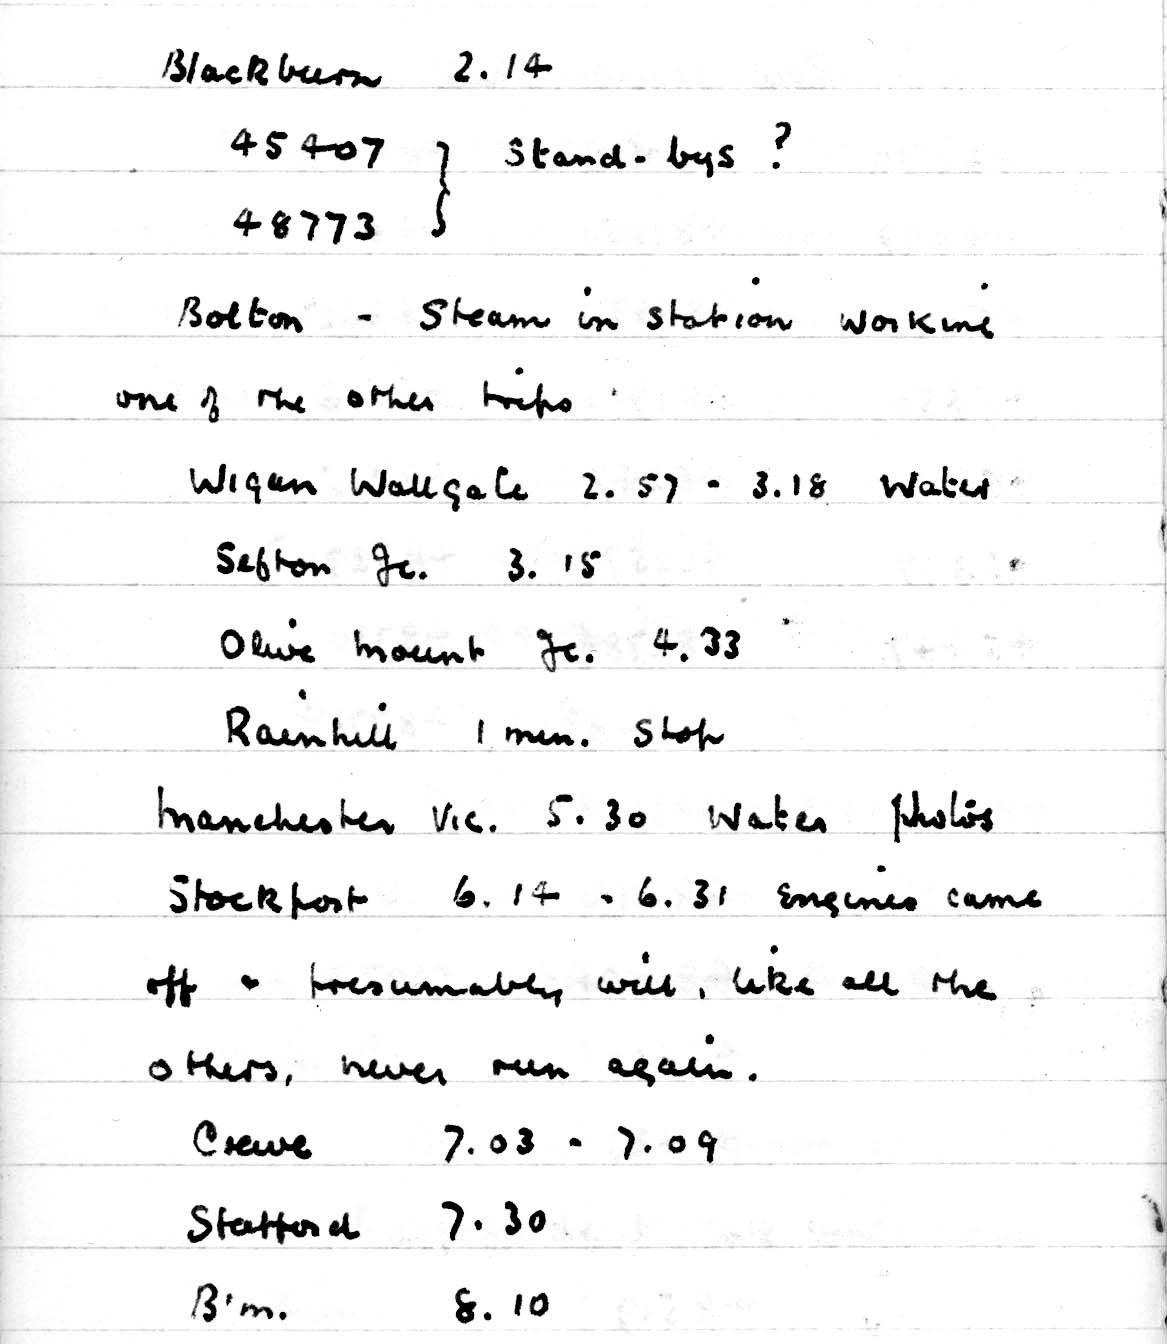 Blackburn 2.14
45407 } Stand-bys ?
48773
Bolton - Steam in station working
one of the other trips
Wigan Wallgate 2.57 - 3.18 Water
Sefton Jc. 3.15
Olive Mount Jc. 4.33
Rainhill 1 min. stop
Manchester Vic. 5.30 Water photos
Stockport 6.14 - 6.31 Engines came
off & presumably will, like all the
others, never run again.
Crewe 7.03 - 7.09
Stafford 7.30
B'm. 8.10